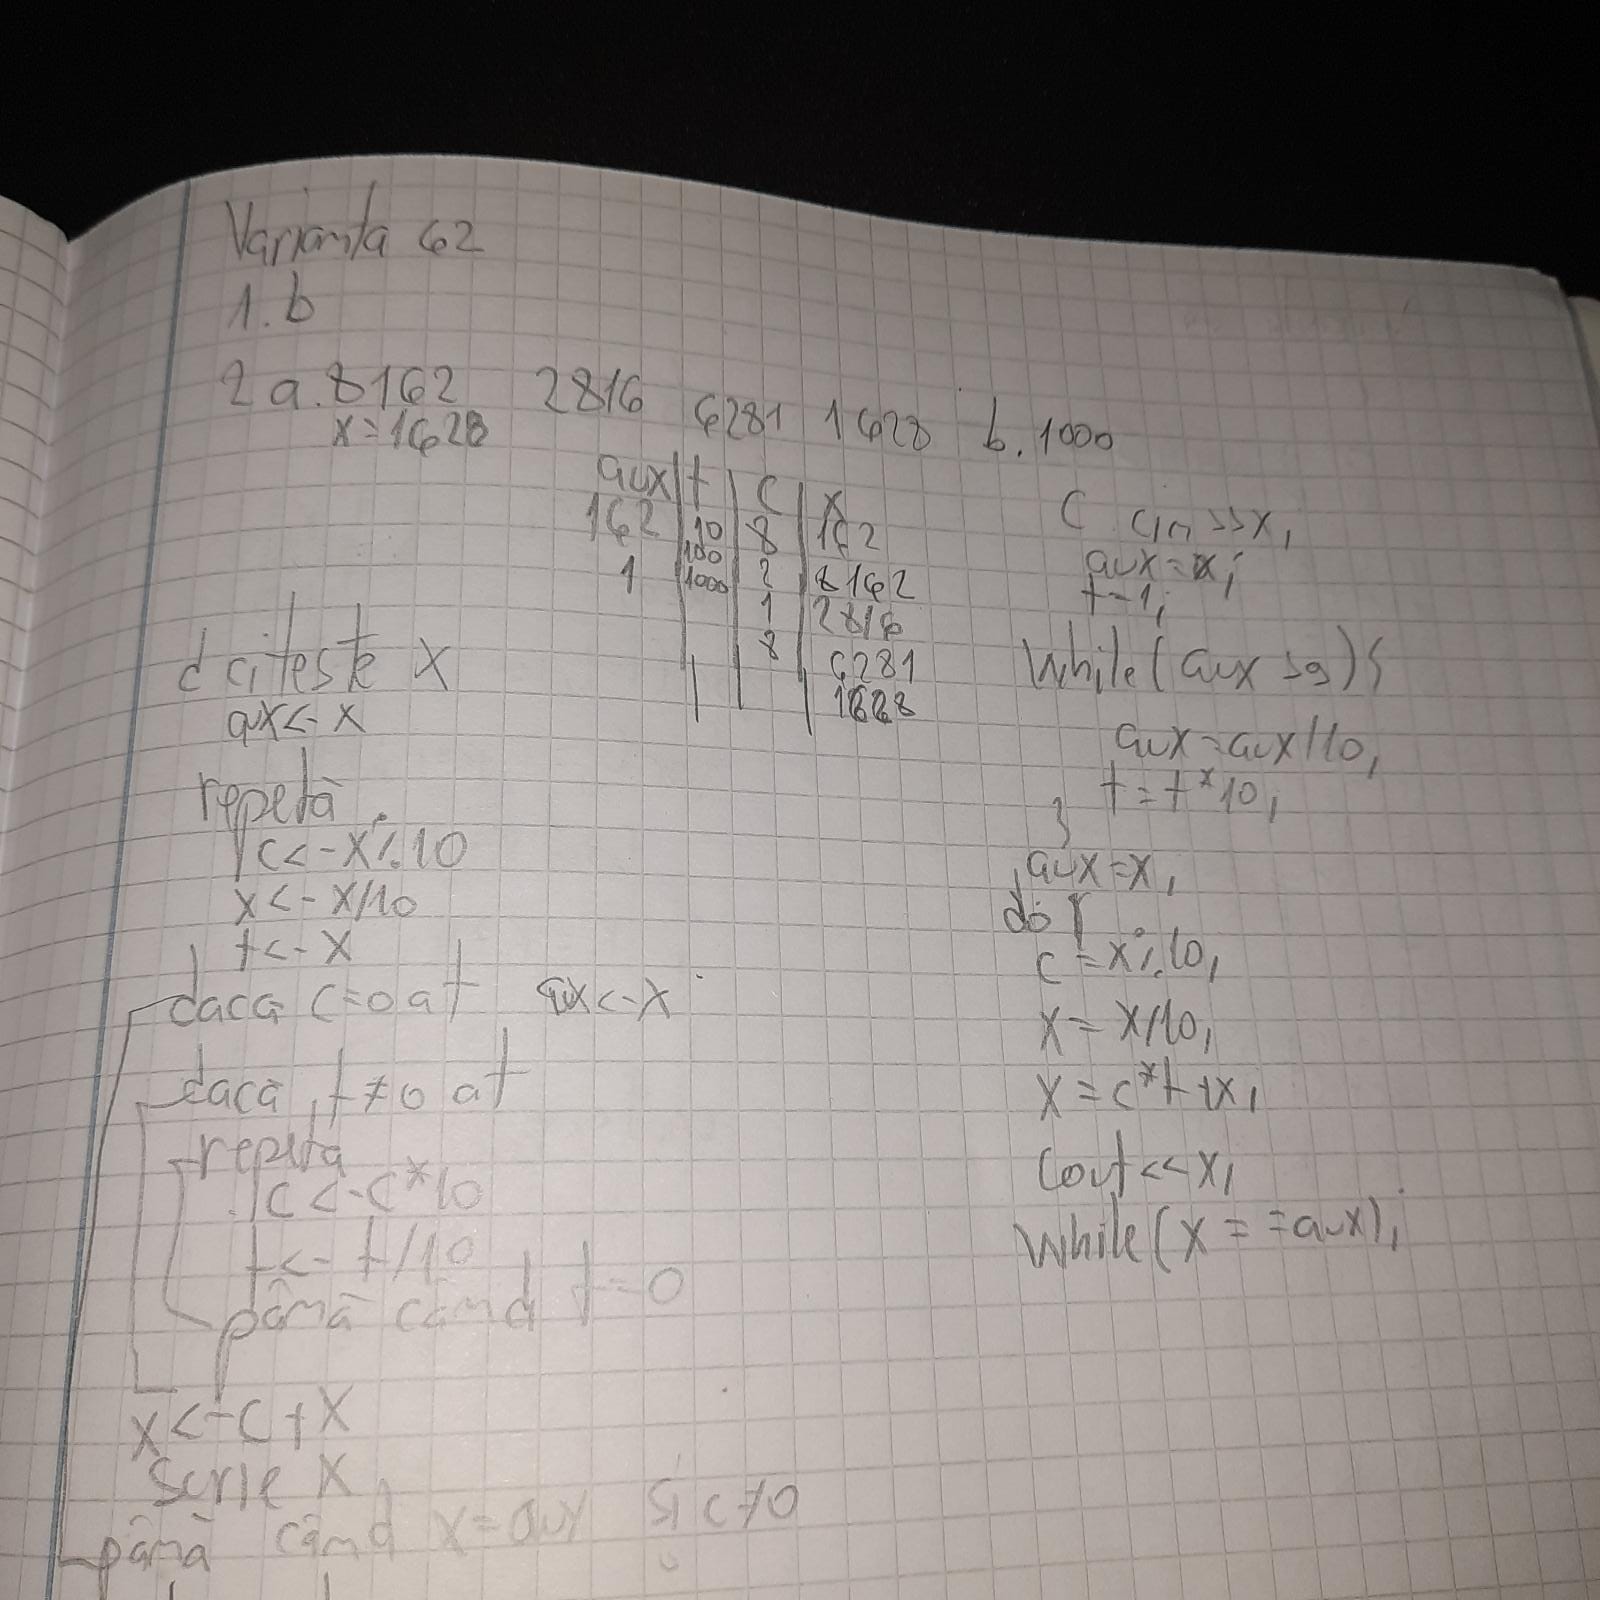 Varianta 62
1. b
2 a. 8162 2816 6281 1628 b. 1000
x = 1628
aux | t | c | x
162 | 10 | 8 | 162
100
1 | 1000 | 2 | 8162
1 | 2816
8 | 6281
1628
d citeste x
aux <- x
repetă
c <- x % 10
x <- x/10
t <- x
daca c = 0 at aux <- x
dacă t ≠ 0 at
repeta
c <- c * 10
t <- t/10
până când t = 0
x <- c + x
scrie x
până când x = aux și c ≠ 0
C cin >> x;
aux = x;
t = 1;
while (aux > 9) {
aux = aux/10;
t = t * 10;
}
aux = x;
do {
c = x % 10;
x = x/10;
x = c * t + x;
cout << x;
while (x == aux);